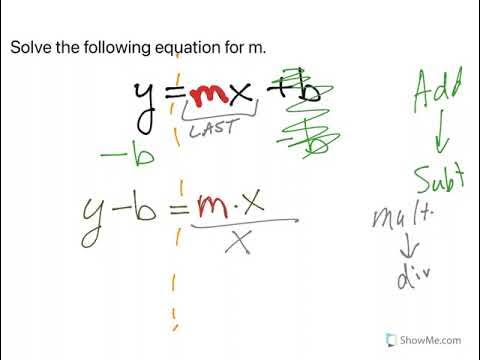 Solve the following equation for m.
y = mx + b
LAST
-b -b
y-b = m·x
x
Add
↓
Subt
mult.
↓
div
ShowMe.com